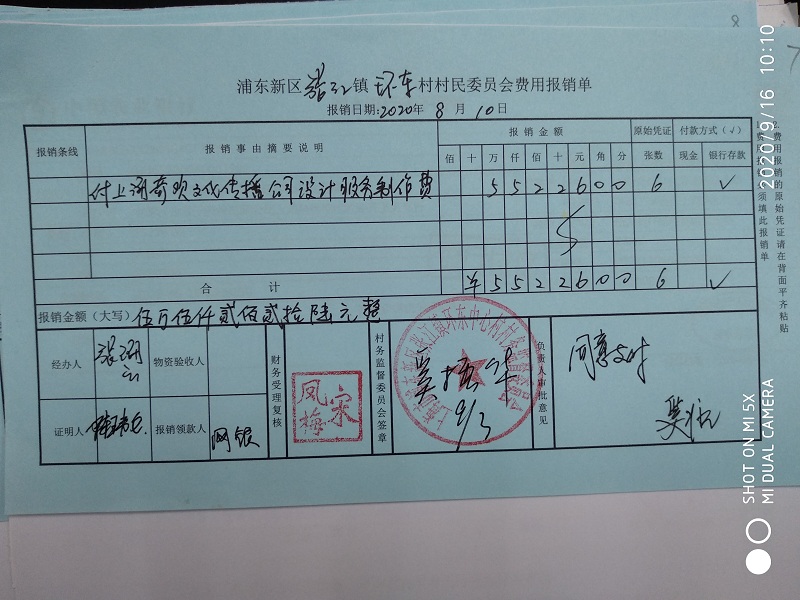 浦东新区张江镇环东村村民委员会费用报销单
报销日期:2020年8月10日
报销条线 报销事由摘要说明 报销金额 原始凭证 付款方式(√)
佰 十 万 仟 佰 十 元 角 分 张数 现金 银行存款
付上海奇欢文化传播公司设计服务制作费 5 5 2 2 6 0 0 6 √
合计 ¥ 5 5 2 2 6 0 0 6 √
报销金额(大写)伍万伍仟贰佰贰拾陆元整
经办人 物资验收人 财务受理复核 凤梅 宋 村务监督委员会签章 9/3 负责人审批意见 同意支付
证明人 报销领款人 网银
2020/9/16 10:10
SHOT ON MI 5X
MI DUAL CAMERA